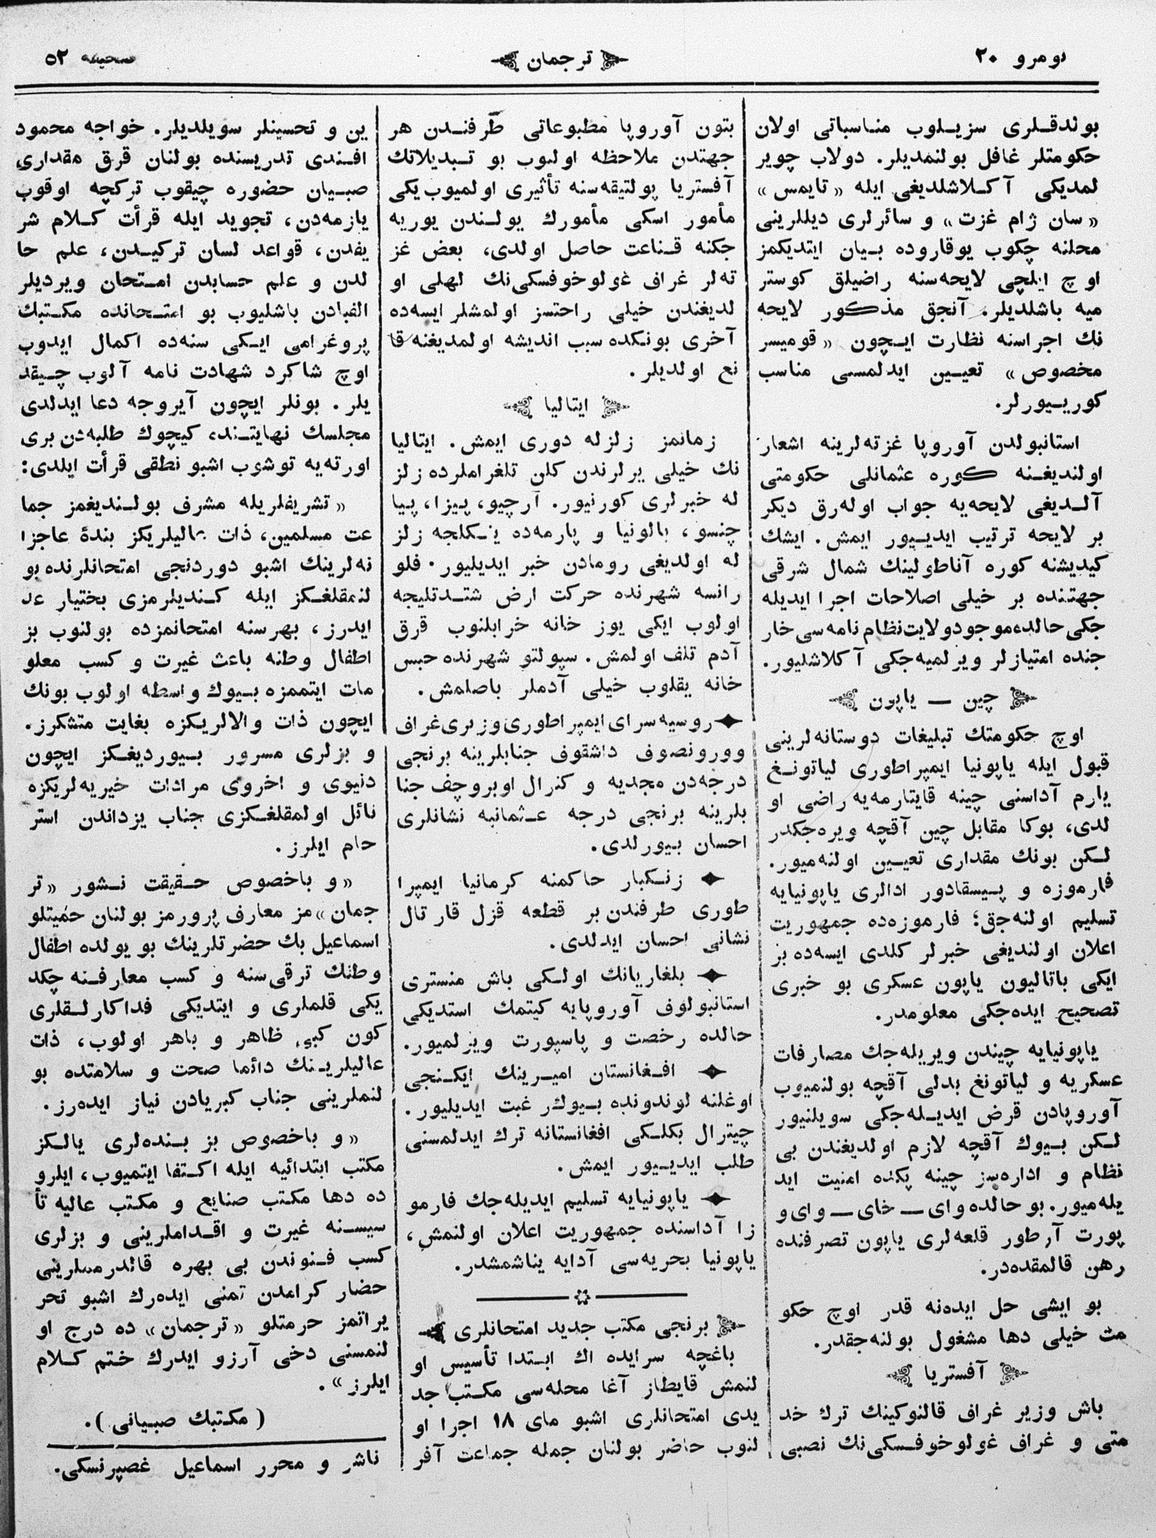 نومرو ۲۰
ترجمان
صحیفه ۵۲
بولدقلری سزیلوب مناسباتی اولان
حکومتلر غافل بولنمدیلر. دولاب چویر
لمدیکی آکلاشلدیغی ایله «تایمس»
«سان ژام غزت» و سائرلری دیللرینی
محلنه چکوب یوقاروده بیان ایتدیکمز
اوچ ایلچی لایحه‌سنه راضیلق کوستر
میه باشلدیلر. آنجق مذکور لایحه
نك اجراسنه نظارت ایچون «قومیسر
مخصوص» تعیین ایدلمسی مناسب
کوریورلر.
استانبولدن آوروپا غزته‌لرینه اشعار
اولندیغنه کوره عثمانلی حکومتی
آلدیغی لایحه‌یه جواب اوله‌رق دیکر
بر لایحه ترتیب ایدییور ایمش. ایشك
کیدیشنه کوره آناطولینك شمال شرقی
جهتنده بر خیلی اصلاحات اجرا ایدیله
جکی حالده موجود ولایت نظام نامه‌سی خار
جنده امتیازلر ویرلمیه‌جکی آکلاشلیور.
چین — یاپون
اوچ حکومتك تبلیغات دوستانه‌لرینی
قبول ایله یاپونیا ایمپراطوری لیاتونغ
یارم آداسنی چینه قایتارمه‌یه راضی او
لدی، بوکا مقابل چین آقچه ویره‌جکدر
لکن بونك مقداری تعیین اولنه‌میور.
فارموزه و پیسقادور ادالری یاپونیایه
تسلیم اولنه‌جق؛ فارموزه‌ده جمهوریت
اعلان اولندیغی خبرلر کلدی ایسه‌ده بز
ایکی باتالیون یاپون عسکری بو خبری
تصحیح ایده‌جکی معلومدر.
یاپونیایه چیندن ویریله‌جك مصارفات
عسکریه و لیاتونغ بدلی آقچه بولنمیوب
آوروپادن قرض ایدیله‌جکی سویلنیور
لکن بیوك آقچه لازم اولدیغندن بی
نظام و اداره‌سز چینه پکده امنیت اید
یله‌میور. بو حالده وای — خای — وای و
پورت آرطور قلعه‌لری یاپون تصرفنده
رهن قالمقده‌در.
بو ایشی حل ایده‌نه قدر اوچ حکو
مت خیلی دها مشغول بولنه‌جقدر.
آفستریا
باش وزیر غراف قالنوکینك ترك خد
متی و غراف غولوخوفسکی‌نك نصبی
بتون آوروپا مطبوعاتی طرفندن هر
جهتدن ملاحظه اولنوب بو تبدیلاتك
آفستریا پولتیقه‌سنه تأثیری اولمیوب یکی
مأمور اسکی مأمورك یولندن یوریه
جکنه قناعت حاصل اولدی، بعض غز
ته‌لر غراف غولوخوفسکی‌نك لهلی او
لدیغندن خیلی راحتسز اولمشلر ایسه‌ده
آخری بونکده سبب اندیشه اولمدیغنه قا
نع اولدیلر.
ایتالیا
زمانمز زلزله دوری ایمش. ایتالیا
نك خیلی یرلرندن کلن تلغراملرده زلز
له خبرلری کورنیور. آرچیو، پیزا، پیا
چنسو، بالونیا و پارمه‌ده یکلجه زلز
له اولدیغی رومادن خبر ایدیلیور. فلو
رانسه شهرنده حرکت ارض شدتلیجه
اولوب ایکی یوز خانه خرابلنوب قرق
آدم تلف اولمش. سپولتو شهرنده حبس
خانه یقلوب خیلی آدملر باصلمش.
روسیه سرای ایمپراطوری وزیری غراف
وورونصوف داشقوف جنابلرینه برنجی
درجه‌دن مجدیه و کنرال اوبروچف جنا
بلرینه برنجی درجه عثمانیه نشانلری
احسان بیورلدی.
زنکبار حاکمنه کرمانیا ایمپرا
طوری طرفندن بر قطعه قزل قارتال
نشانی احسان ایدلدی.
بلغاریانك اولکی باش منستری
استانبولوف آوروپایه کیتمك استدیکی
حالده رخصت و پاسپورت ویرلمیور.
افغانستان امیرینك ایکنجی
اوغلنه لوندونده بیوك رغبت ایدیلیور.
چیترال بکلکی افغانستانه ترك ایدلمسنی
طلب ایدییور ایمش.
یاپونیایه تسلیم ایدیله‌جك فارمو
زا آداسنده جمهوریت اعلان اولنمش،
یاپونیا بحریه‌سی آدایه یناشمشدر.
برنجی مکتب جدید امتحانلری
باغچه سرایده اك ابتدا تأسیس او
لنمش قایطاز آغا محله‌سی مکتب جد
یدی امتحانلری اشبو مای ۱۸ اجرا او
لنوب حاضر بولنان جمله جماعت آفر
ین و تحسینلر سویلدیلر. خواجه محمود
افندی تدریسنده بولنان قرق مقداری
صبیان حضوره چیقوب ترکچه اوقوب
یازمه‌دن، تجوید ایله قرأت کلام شر
یفدن، قواعد لسان ترکیدن، علم حا
لدن و علم حسابدن امتحان ویردیلر
الفبادن باشلیوب بو امتحانده مکتبك
پروغرامی ایکی سنه‌ده اکمال ایدوب
اوچ شاکرد شهادت نامه آلوب چیقد
یلر. بونلر ایچون آیروجه دعا ایدلدی
مجلسك نهایتنده کیچوك طلبه‌دن بری
اورته‌یه توشوب اشبو نطقی قرأت ایلدی:
«تشریفلریله مشرف بولندیغمز جما
عت مسلمین، ذات عالیلریکز بندهٔ عاجزا
نه‌لرینك اشبو دوردنجی امتحانلرنده بو
لنمقلغکز ایله کندیلرمزی بختیار عد
ایدرز، بهر سنه امتحانمزده بولنوب بز
اطفال وطنه باعث غیرت و کسب معلو
مات ایتممزه بیوك واسطه اولوب بونك
ایچون ذات والالریکزه بغایت متشکرز.
و بزلری مسرور بیوردیغکز ایچون
دنیوی و اخروی مرادات خیریه‌لریکزه
نائل اولمقلغکزی جناب یزداندن استر
حام ایلرز.
«و باخصوص حقیقت نشور «تر
جمان» مز معارف پرورمز بولنان حمیتلو
اسماعیل بك حضرتلرینك بو یولده اطفال
وطنك ترقی‌سنه و کسب معارفنه چکد
یکی قلملری و ایتدیکی فداکارلقلری
کون کبی ظاهر و باهر اولوب، ذات
عالیلرینك دائما صحت و سلامتده بو
لنملرینی جناب کبریادن نیاز ایده‌رز.
«و باخصوص بز بنده‌لری یالکز
مکتب ابتدائیه ایله اکتفا ایتمیوب، ایلرو
ده دها مکتب صنایع و مکتب عالیه تأ
سیسنه غیرت و اقداملرینی و بزلری
کسب فنوندن بی بهره قالدرمسلرینی
حضار کرامدن تمنی ایده‌رك اشبو تحر
یراتمز حرمتلو «ترجمان» ده درج او
لنمسنی دخی آرزو ایدرك ختم کلام
ایلرز».
(مکتبك صبیانی).
ناشر و محرر اسماعیل غصپرنسکی.